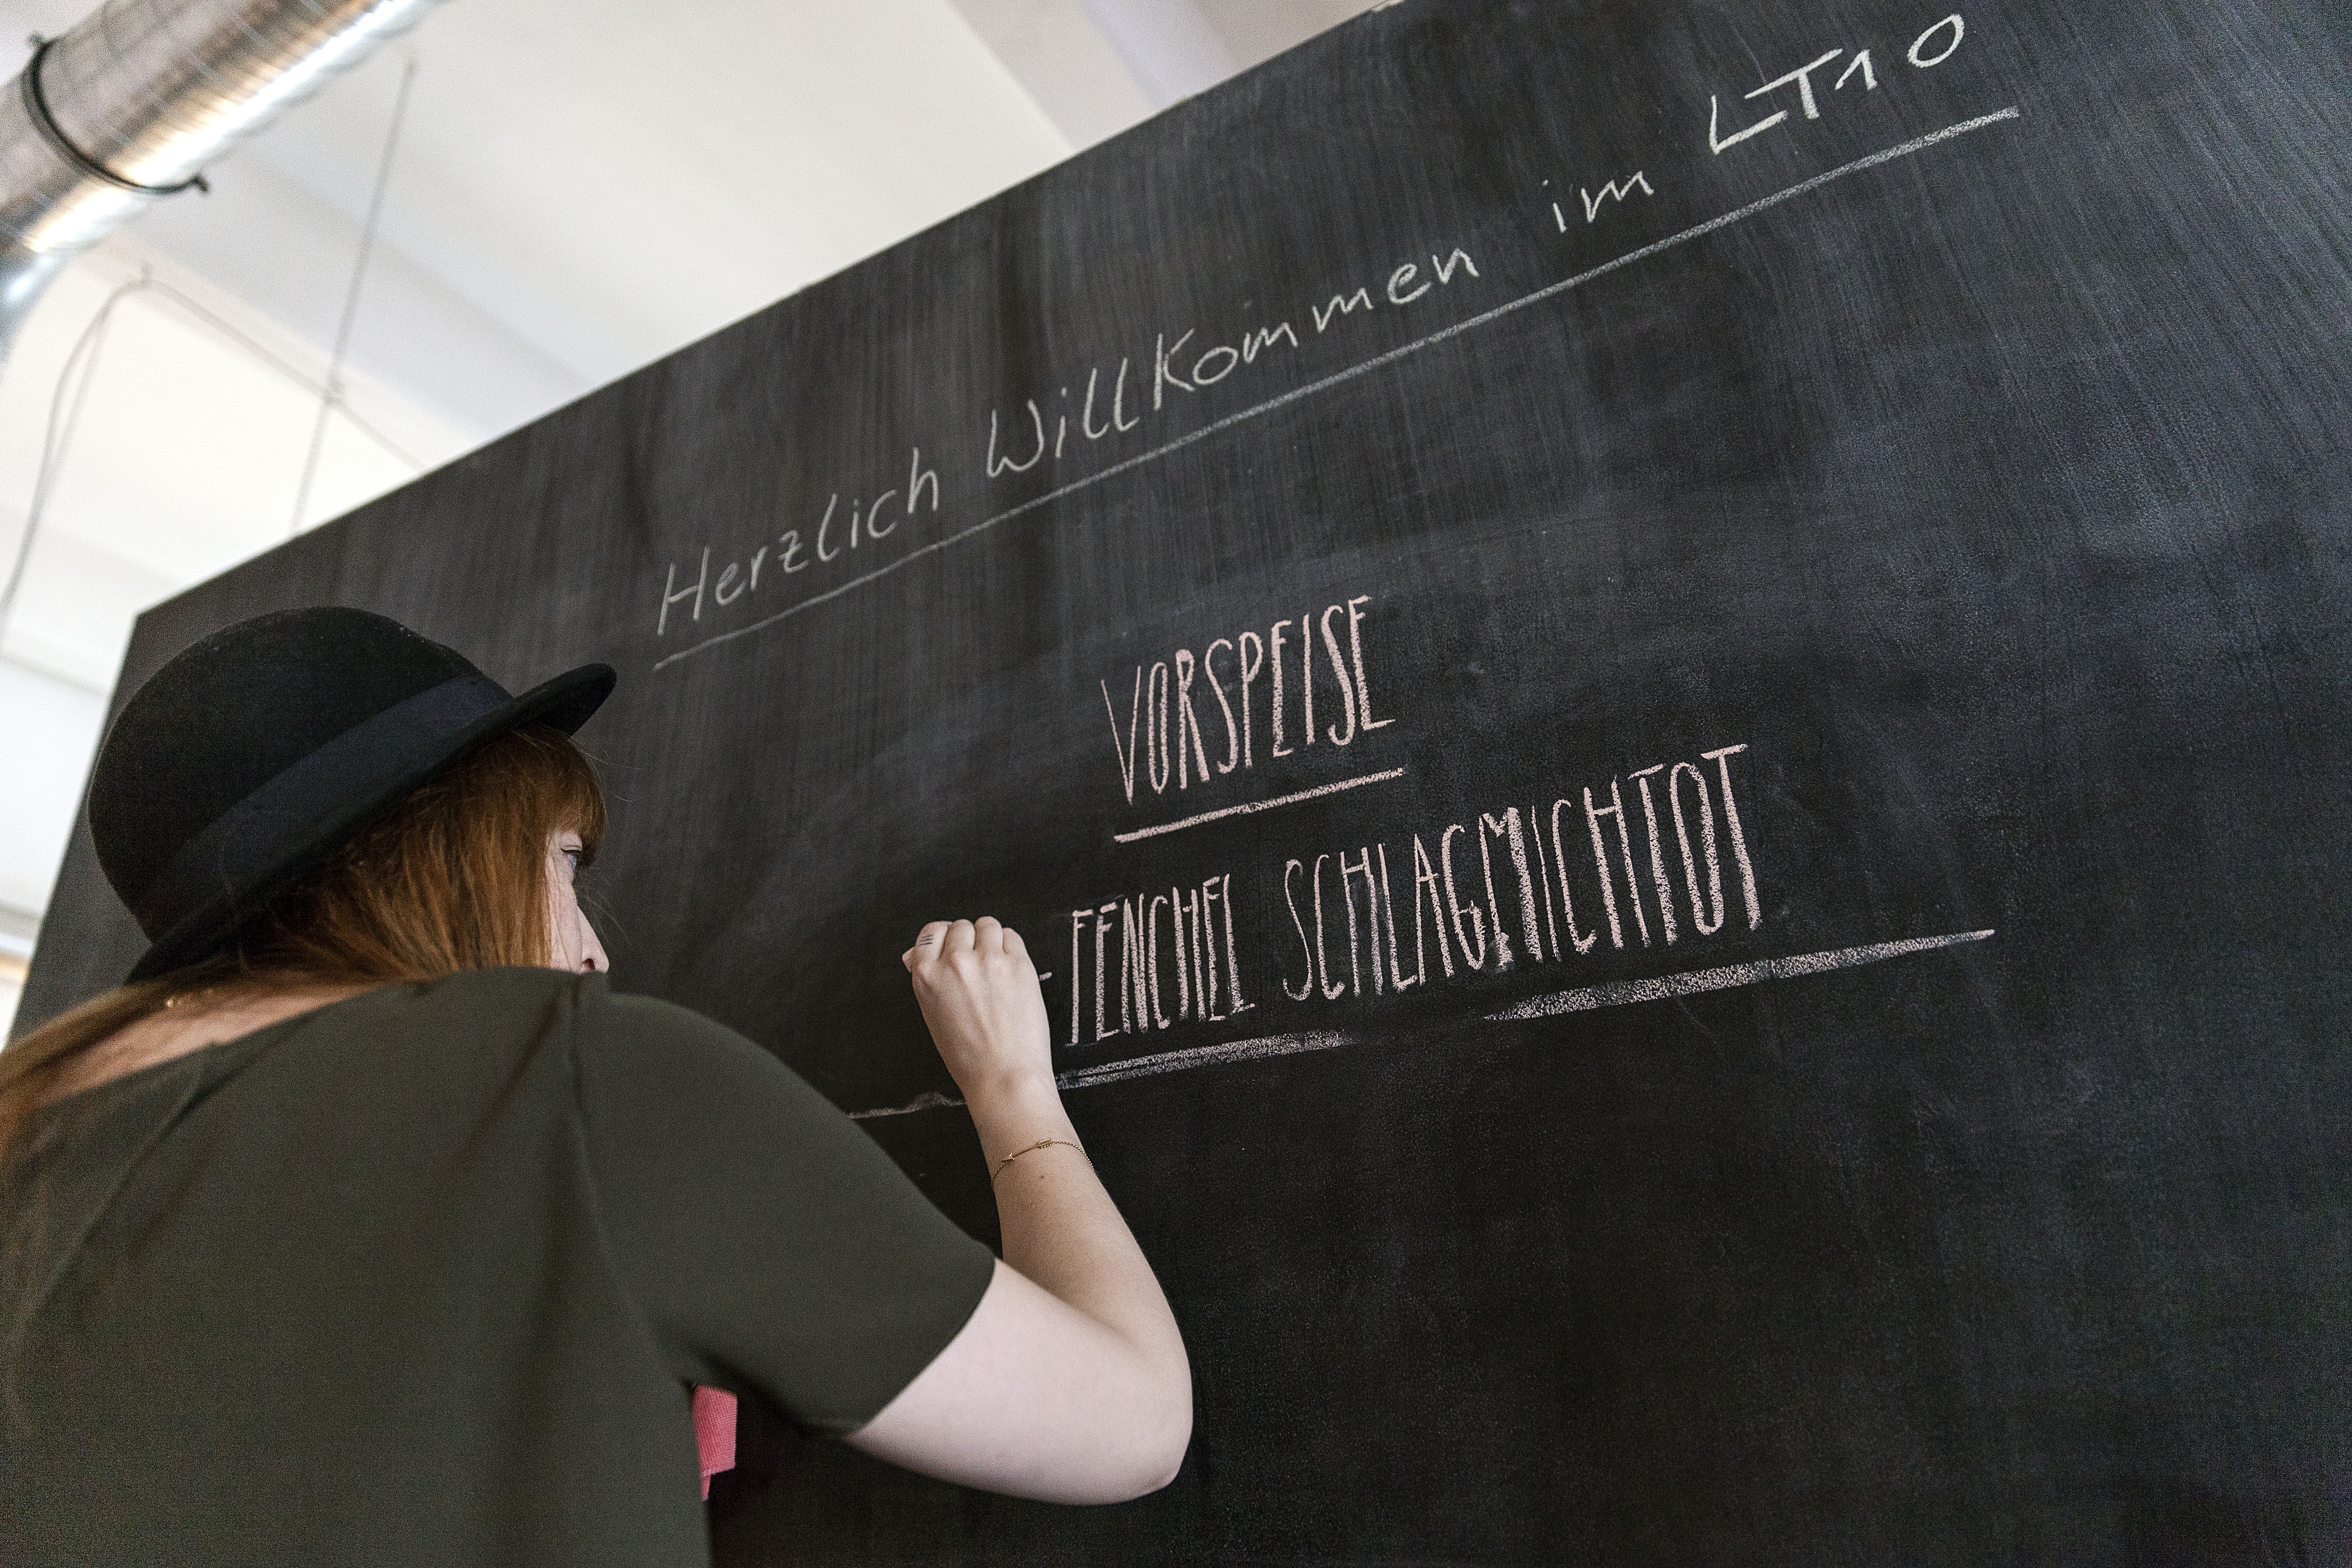 Herzlich Willkommen im LT10
VORSPEISE
-FENCHEL SCHLAGMICHTOT